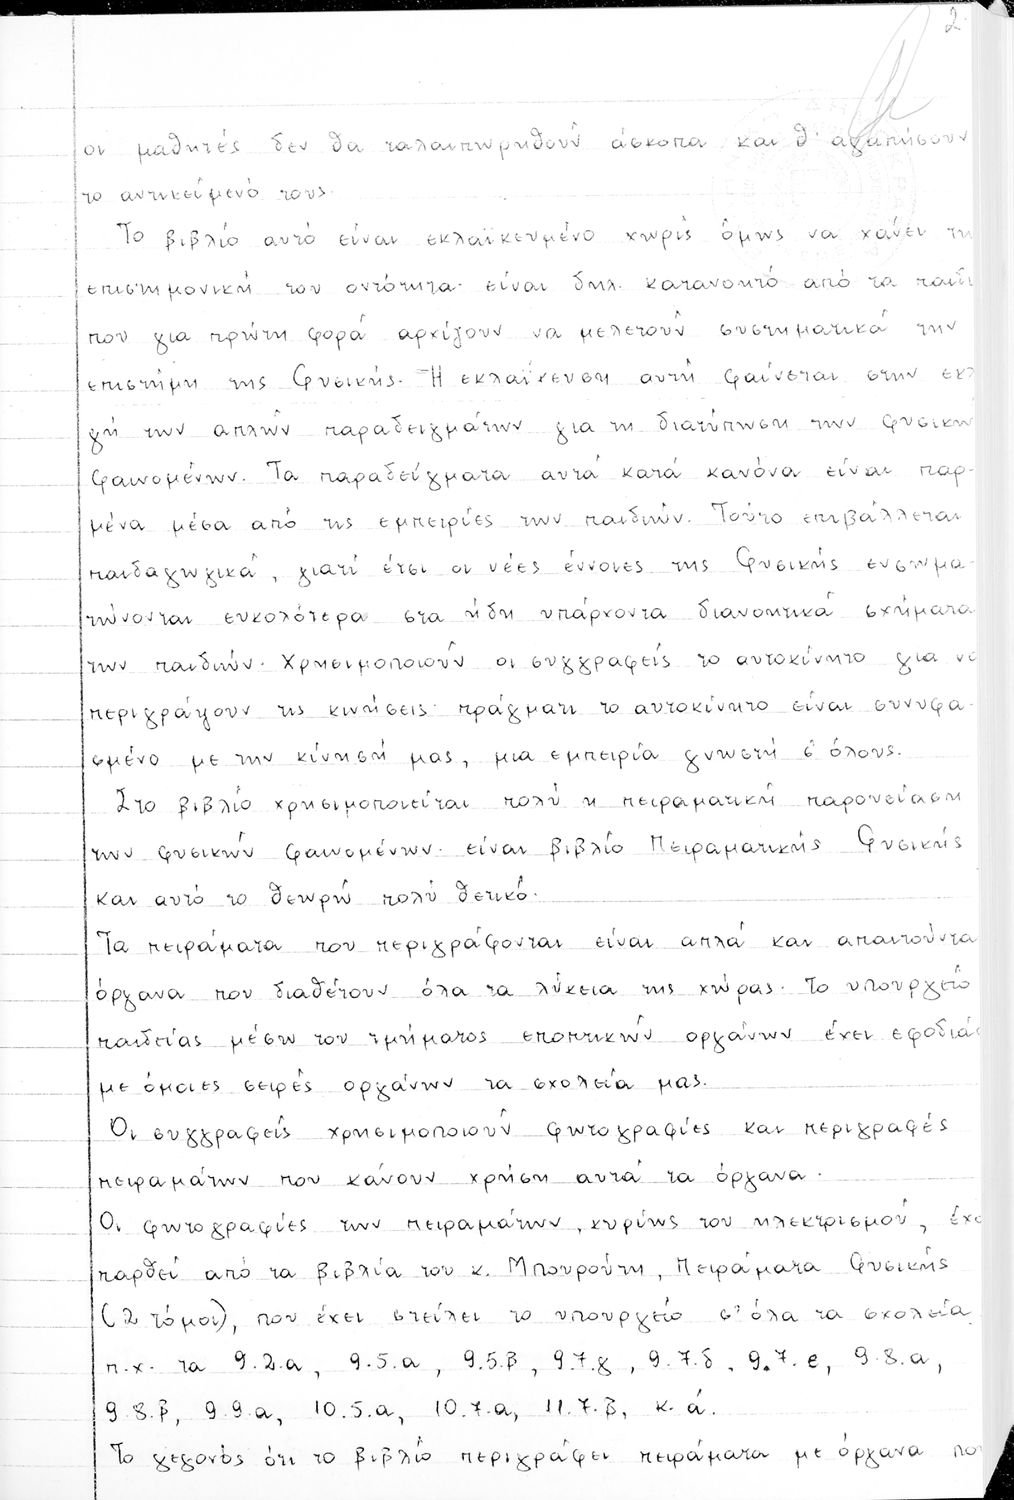 2
οι μαθητές δεν θα ταλαιπωρηθούν άσκοπα και θ' αγαπήσουν
το αντικείμενό τους.
Το βιβλίο αυτό είναι εκλαϊκευμένο χωρίς όμως να χάνει τη
επιστημονική του οντότητα· είναι δηλ. κατανοητό από τα παιδι
που για πρώτη φορά αρχίζουν να μελετούν συστηματικά την
επιστήμη της Φυσικής. Η εκλαΐκευση αυτή φαίνεται στην εκλ
γή των απλών παραδειγμάτων για τη διατύπωση των φυσικών
φαινομένων. Τα παραδείγματα αυτά κατά κανόνα είναι παρ-
μένα μέσα από τις εμπειρίες των παιδιών. Τούτο επιβάλλεται
παιδαγωγικά, γιατί έτσι οι νέες έννοιες της Φυσικής ενσωμα-
τώνονται ευκολότερα στα ήδη υπάρχοντα διανοητικά σχήματα
των παιδιών. Χρησιμοποιούν οι συγγραφείς το αυτοκίνητο για να
περιγράψουν τις κινήσεις· πράγματι το αυτοκίνητο είναι συνυφα-
σμένο με την κίνησή μας, μια εμπειρία γνωστή σ' όλους.
Στο βιβλίο χρησιμοποιείται πολύ η πειραματική παρουσίαση
των φυσικών φαινομένων· είναι βιβλίο Πειραματικής Φυσικής
και αυτό το θεωρώ πολύ θετικό.
Τα πειράματα που περιγράφονται είναι απλά και απαιτούνται
όργανα που διαθέτουν όλα τα λύκεια της χώρας. Το υπουργείο
παιδείας μέσω του τμήματος εποπτικών οργάνων έχει εφοδιάσ
με όμοιες σειρές οργάνων τα σχολεία μας.
Οι συγγραφείς χρησιμοποιούν φωτογραφίες και περιγραφές
πειραμάτων που κάνουν χρήση αυτά τα όργανα.
Οι φωτογραφίες των πειραμάτων, κυρίως του ηλεκτρισμού, έχο
παρθεί από τα βιβλία του κ. Μπουρούτη, Πειράματα Φυσικής
(2 τόμοι), που έχει στείλει το υπουργείο σ' όλα τα σχολεία,
π.χ. τα 9.2.α, 9.5.α, 9.5.β, 9.7.γ, 9.7.δ, 9.7.ε, 9.8.α,
9.8.β, 9.9.α, 10.5.α, 10.7.α, 11.7.β, κ.ά.
Το γεγονός ότι το βιβλίο περιγράφει πειράματα με όργανα που